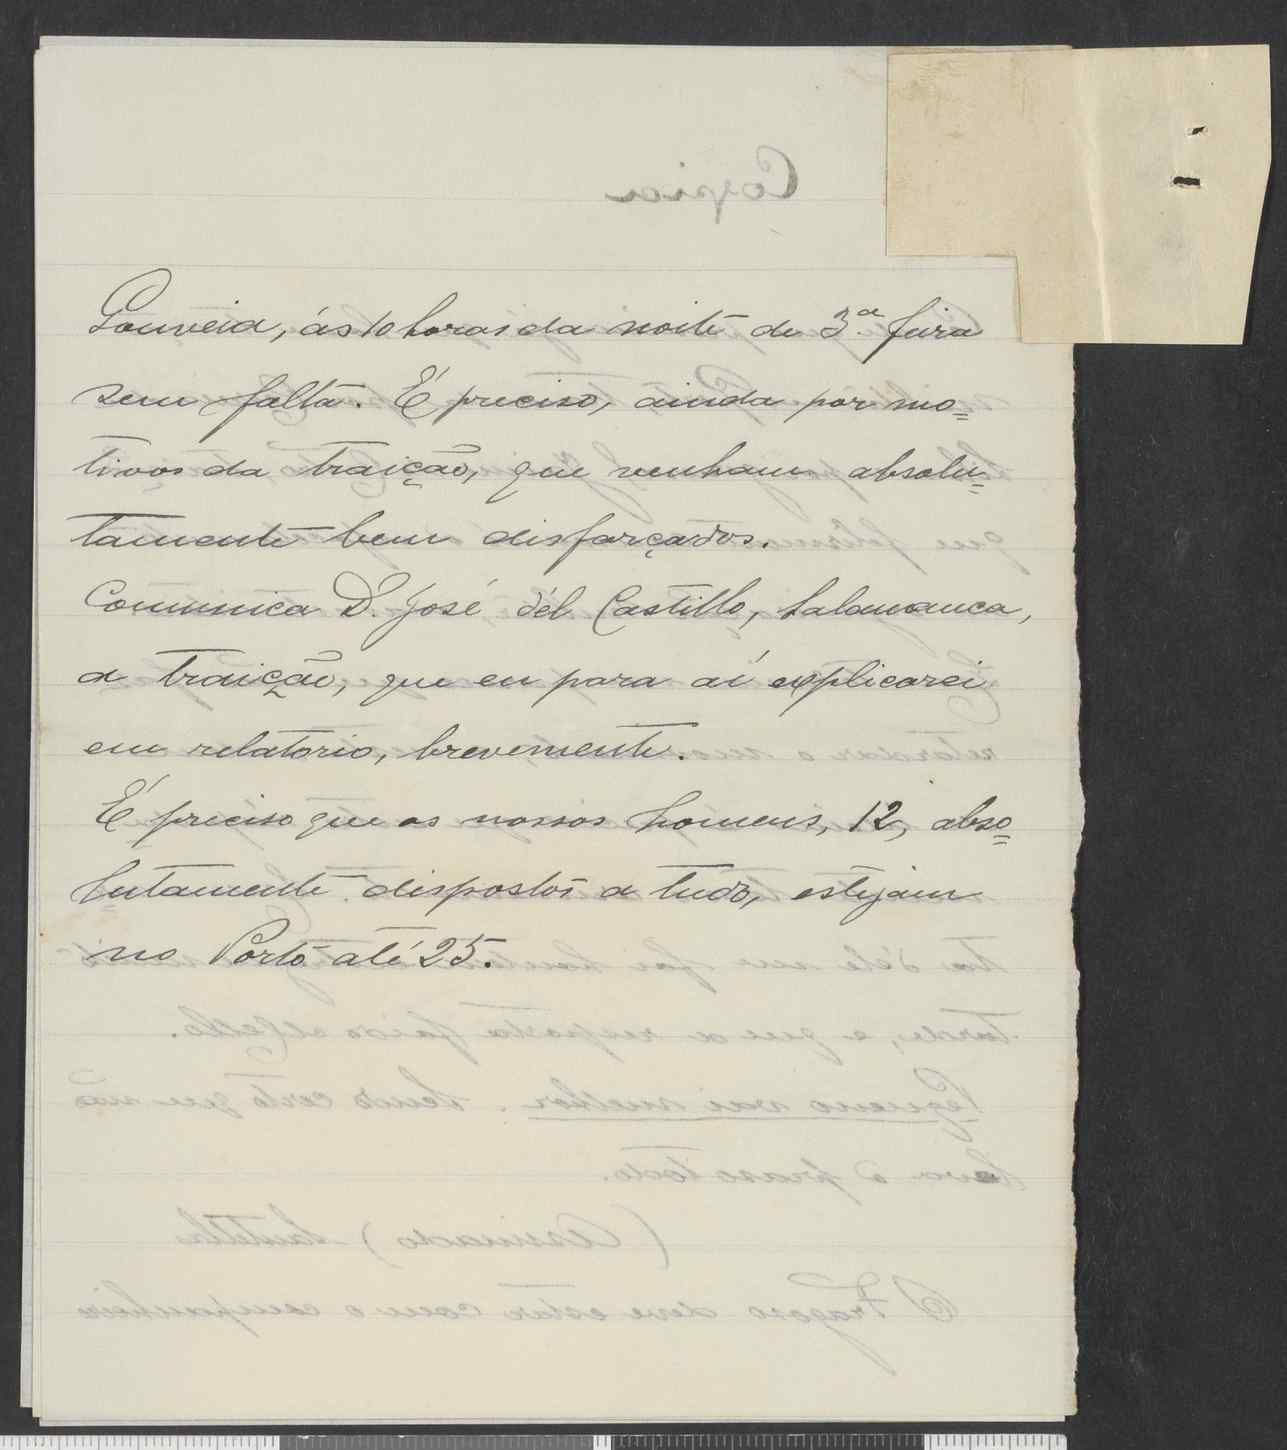 Gouveia, ás 10 horas da noite de 3.ª feira
sem falta. É preciso, ainda por mo=
tivos da traição, que venham absolu=
tamente bem disfarçados.
Comunica D. José del Castillo, Salamanca,
a traição, que eu para aí explicarei
em relatorio, brevemente.
É preciso que os nossos homens, 12, abso=
lutamente dispostos a tudo, estejam
no Porto até 25.